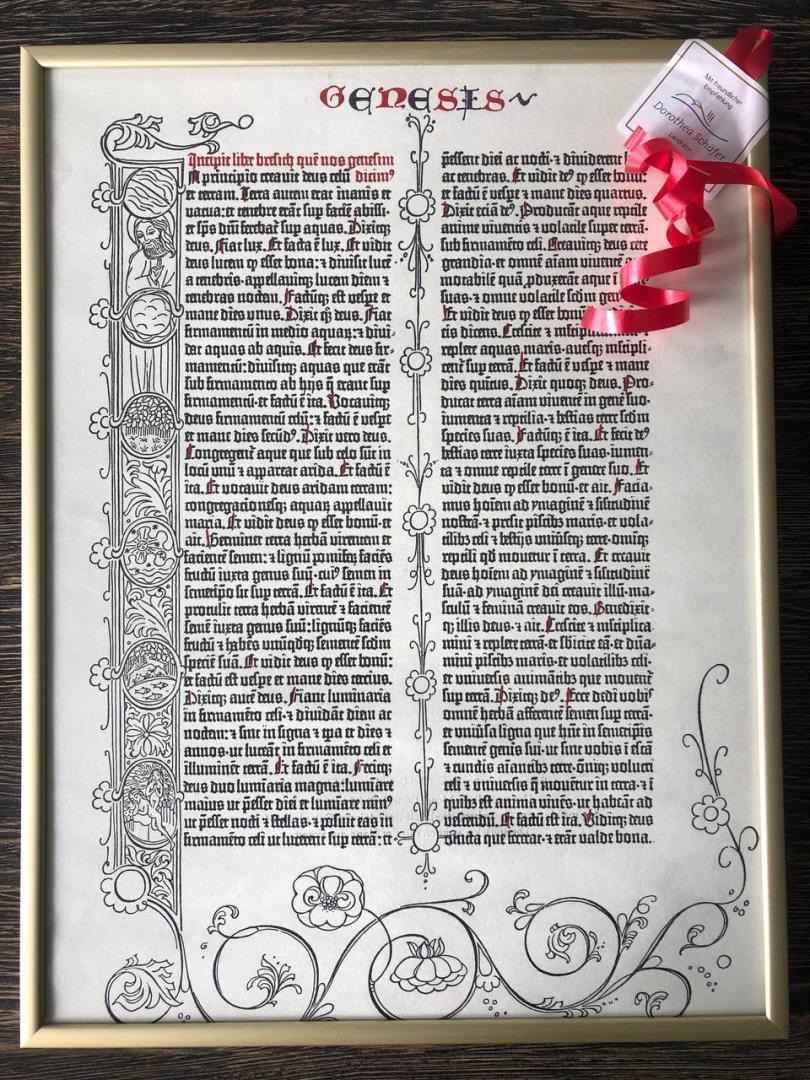 GENESIS
Incipit liber bresith quē nos genesim
In principio creavit deus celū dicimꝰ
et terram. Terra autem erat inanis et
vacua: et tenebre erāt sup faciē abissi:
et sp̄s dn̄i ferebat͛ sup aquas. Dixitqꝫ
deus. Fiat lux. Et facta ē lux. Et vidit
deus lucem ꝙ esset bona: ⁊ divisit lucē
a tenebris. appellavitqꝫ lucem diem ⁊
tenebras noctem. Factūqꝫ est vespe et
mane dies unus. Dixit qꝫ deus. Fiat
firmamentū in medio aquaꝝ: ⁊ divi-
dat aquas ab aquis. Et fecit deus fir-
mamentū: divisitqꝫ aquas que erāt
sub firmamento ab hijs q̄ erant sup
firmamentū: et factū ē ita. Vocavitqꝫ
deus firmamentū celū: ⁊ factū ē vespe
et mane dies secūdꝰ. Dixit vero deus.
Congregent͛ aque que sub celo sūt in
locū unū ⁊ appareat arida. Et factū ē
ita. Et vocavit deus aridam terram:
congregacionesqꝫ aquaꝝ appellavit
maria. Et vidit deus ꝙ esset bonū. et
ait. Germinet terra herbā virentem et
facientē semen: ⁊ lignū pomifeꝝ faciēs
fructū iuxta genus suū. cuiꝰ semen in
semetipō sit sup terrā. Et factū ē ita. Et
protulit terra herbā virentē ⁊ facientē
semē iuxta genus suū: lignūqꝫ faciēs
fructū ⁊ habēs unūqdqꝫ sementē scd̄m
speciē suā. Et vidit deus ꝙ esset bonū:
et factū est vespe et mane dies tercius.
Dixitqꝫ autē deus. Fiant luminaria
in firmamēto celi. ⁊ dividāt diem ac
noctem: ⁊ sint in signa ⁊ tp̄a et dies ⁊
annos. ut luceāt in firmamēto celi et
illuminēt terrā. Et factū ē ita. Fecitqꝫ
deus duo luminaria magna: lumīare
maius ut p̄esset diei et lumīare minꝰ
ut p̄esset nocti ⁊ stellas. ⁊ posuit eas in
firmamēto celi ut lucerent sup terrā: et
p̄essent diei ac nocti. ⁊ dividerent
ac tenebras. Et vidit dꝰ ꝙ esset bonū.
et factū ē vespe ⁊ mane dies quartus.
Dixit eciā dꝰ. Producāt aque reptile
anime viventis ⁊ volatile super terrā.
sub firmamēto celi. Creavitqꝫ deus cete
grandia. et omnē aīam viventē ⁊
motabilē quā pduxerāt aque
suas. ⁊ omne volatile scd̄m
Et vidit deus ꝙ esset
eis dicens. Crescite ⁊
replete aquas maris. avesqꝫ mltipli-
cent͛ sup terrā. Et factū ē vespe ⁊ mane
dies quītus. Dixit quoqꝫ deus. Pro-
ducat terra aīam viventē in genē suo.
iumenta ⁊ reptilia. ⁊ bestias terre scd̄m
species suas. Factūqꝫ ē ita. Et fecit dꝰ
bestias terre iuxta species suas. iumen-
ta ⁊ omne reptile terre ī genere suo. Et
vidit deus ꝙ esset bonū. et ait. Facia-
mus hoīem ad ymaginē ⁊ sil̄itudinē
nostrā. ⁊ presit piscibꝫ maris. et vola-
tilibꝫ celi ⁊ bestijs univsqꝫ terre. omīqꝫ
reptili qd̄ movetur ī terra. Et creavit
deus hoīem ad ymaginē ⁊ sil̄itudinē
suā. ad ymaginē dei creavit illū. ma-
sculū ⁊ feminā creavit eos. Benedixit-
qꝫ illis deus. ⁊ ait. Crescite ⁊ mltiplica-
mini ⁊ replete terrā. et sbicite eā. et dn̄a-
mini piscibꝫ maris. et volatilibꝫ celi.
et universis animātibꝫ que movent͛
sup terrā. Dixitqꝫ dꝰ. Ecce dedi vobis
omnē herbā afferentē semen sup terrā.
et univsa ligna que hn̄t in semetip̄is
sementē genis sui. ut sint vobis ī escā
⁊ cunctis aīantibꝫ terre. ōniqꝫ volucri
celi ⁊ universis q̄ moventur in terra. ⁊ ī
quibꝫ est anima vivēs. ut habeāt ad
vescendū. Et factū est ita. Viditqꝫ deus
cuncta que fecerat. ⁊ erāt valde bona.
Mit freundlicher
Empfehlung
Dorothea Schäfer
Landrätin